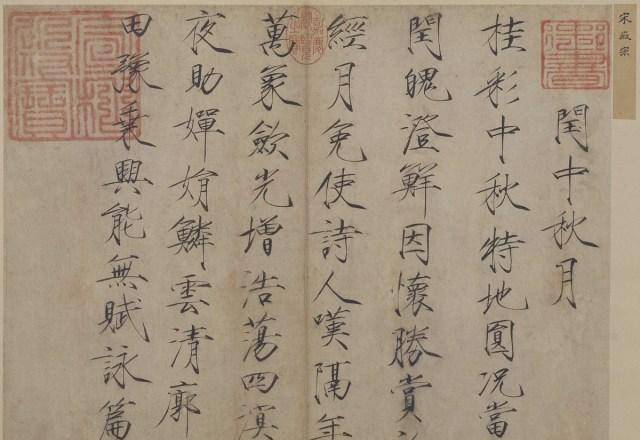 宋徽宗
御書
閏中秋月
桂彩中秋特地圓况當
閏魄澄鮮因懷勝賞
經月免使詩人嘆隔年
萬象歛光增浩蕩四溟
夜助嬋娟鱗雲清廓
田豫乘興能無賦詠篇